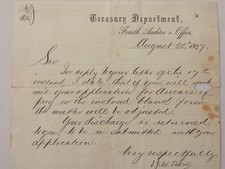 Treasury Department,
Fourth Auditor's Office,
August 20" 18
Sir
In reply to your letter of the 17th
instant, I state, that if you will
your application for Arrears of
pay in the enclosed blank form
the matter will be adjusted.
Your discharge is returned
to you to be submitted with your
application.
Very respectfully